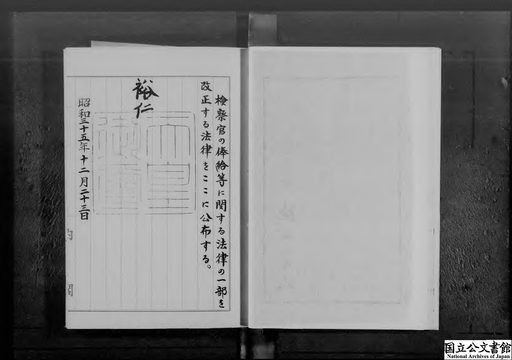 検察官の俸給等に関する法律の一部を
改正する法律をここに公布する。
裕仁
昭和三十五年十二月二十三日
国立公文書館
National Archives of Japan